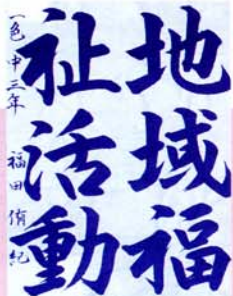 地域福
祉活動
一色中三年 福田侑紀